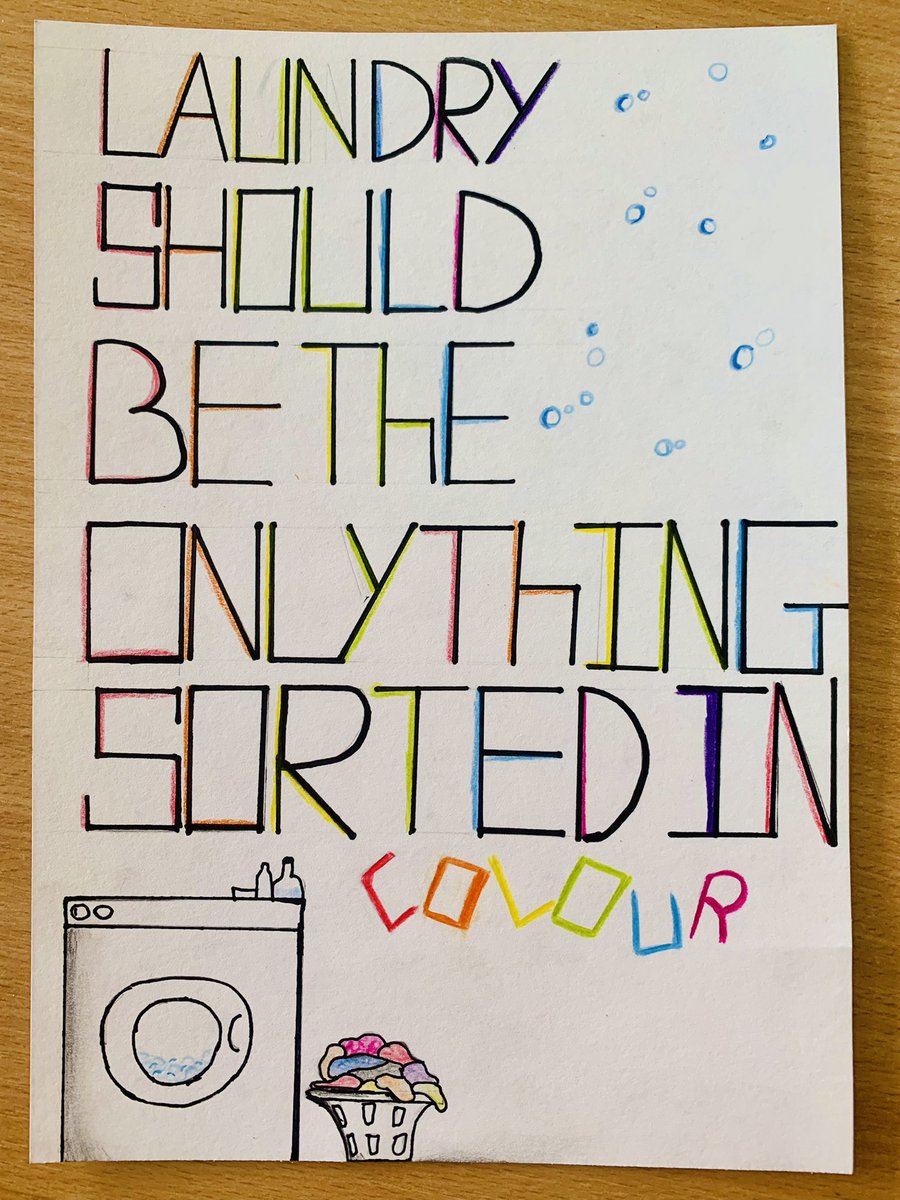 LAUNDRY
SHOULD
BE THE
ONLY THING
SORTED IN
COLOUR